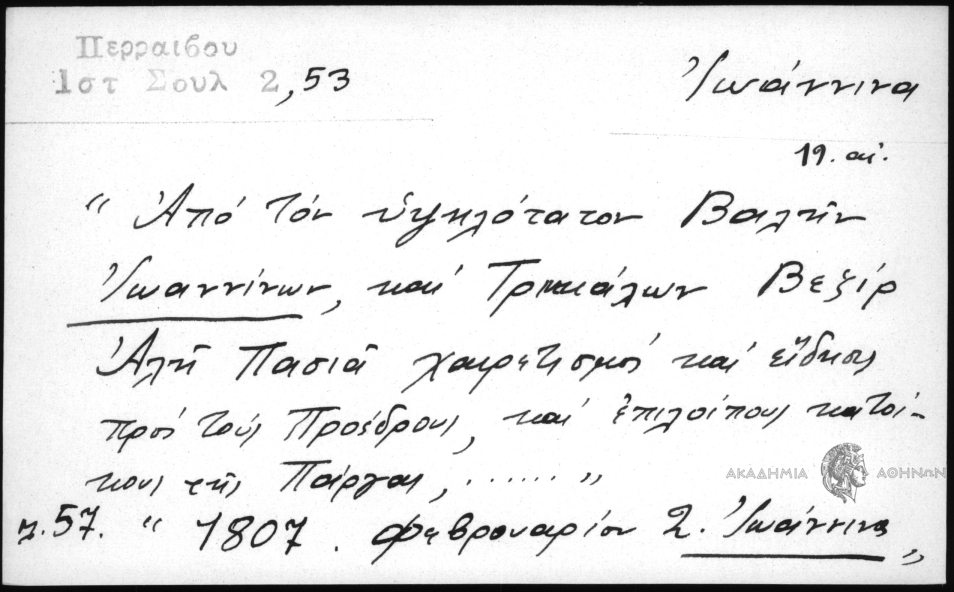 Περραιβου
Ιστ Σουλ 2,53
Ἰωάννινα
19. αἰ.
“ Ἀπό τόν ὑψηλότατον Βαλῆν
Ἰωαννίνων, καί Τρικκάλων Βεζίρ
Ἀλῆ Πασιᾶ χαιρετισμός καί εἴδησις
πρός τούς Προέδρους, καί ἐπιλοίπους κατοί-
κους τῆς Πάργας, ...... ”
ΑΚΑΔΗΜΙΑ ΑΘΗΝΩΝ
57. “ 1807. Φεβρουαρίου 2. Ἰωάννινα ”